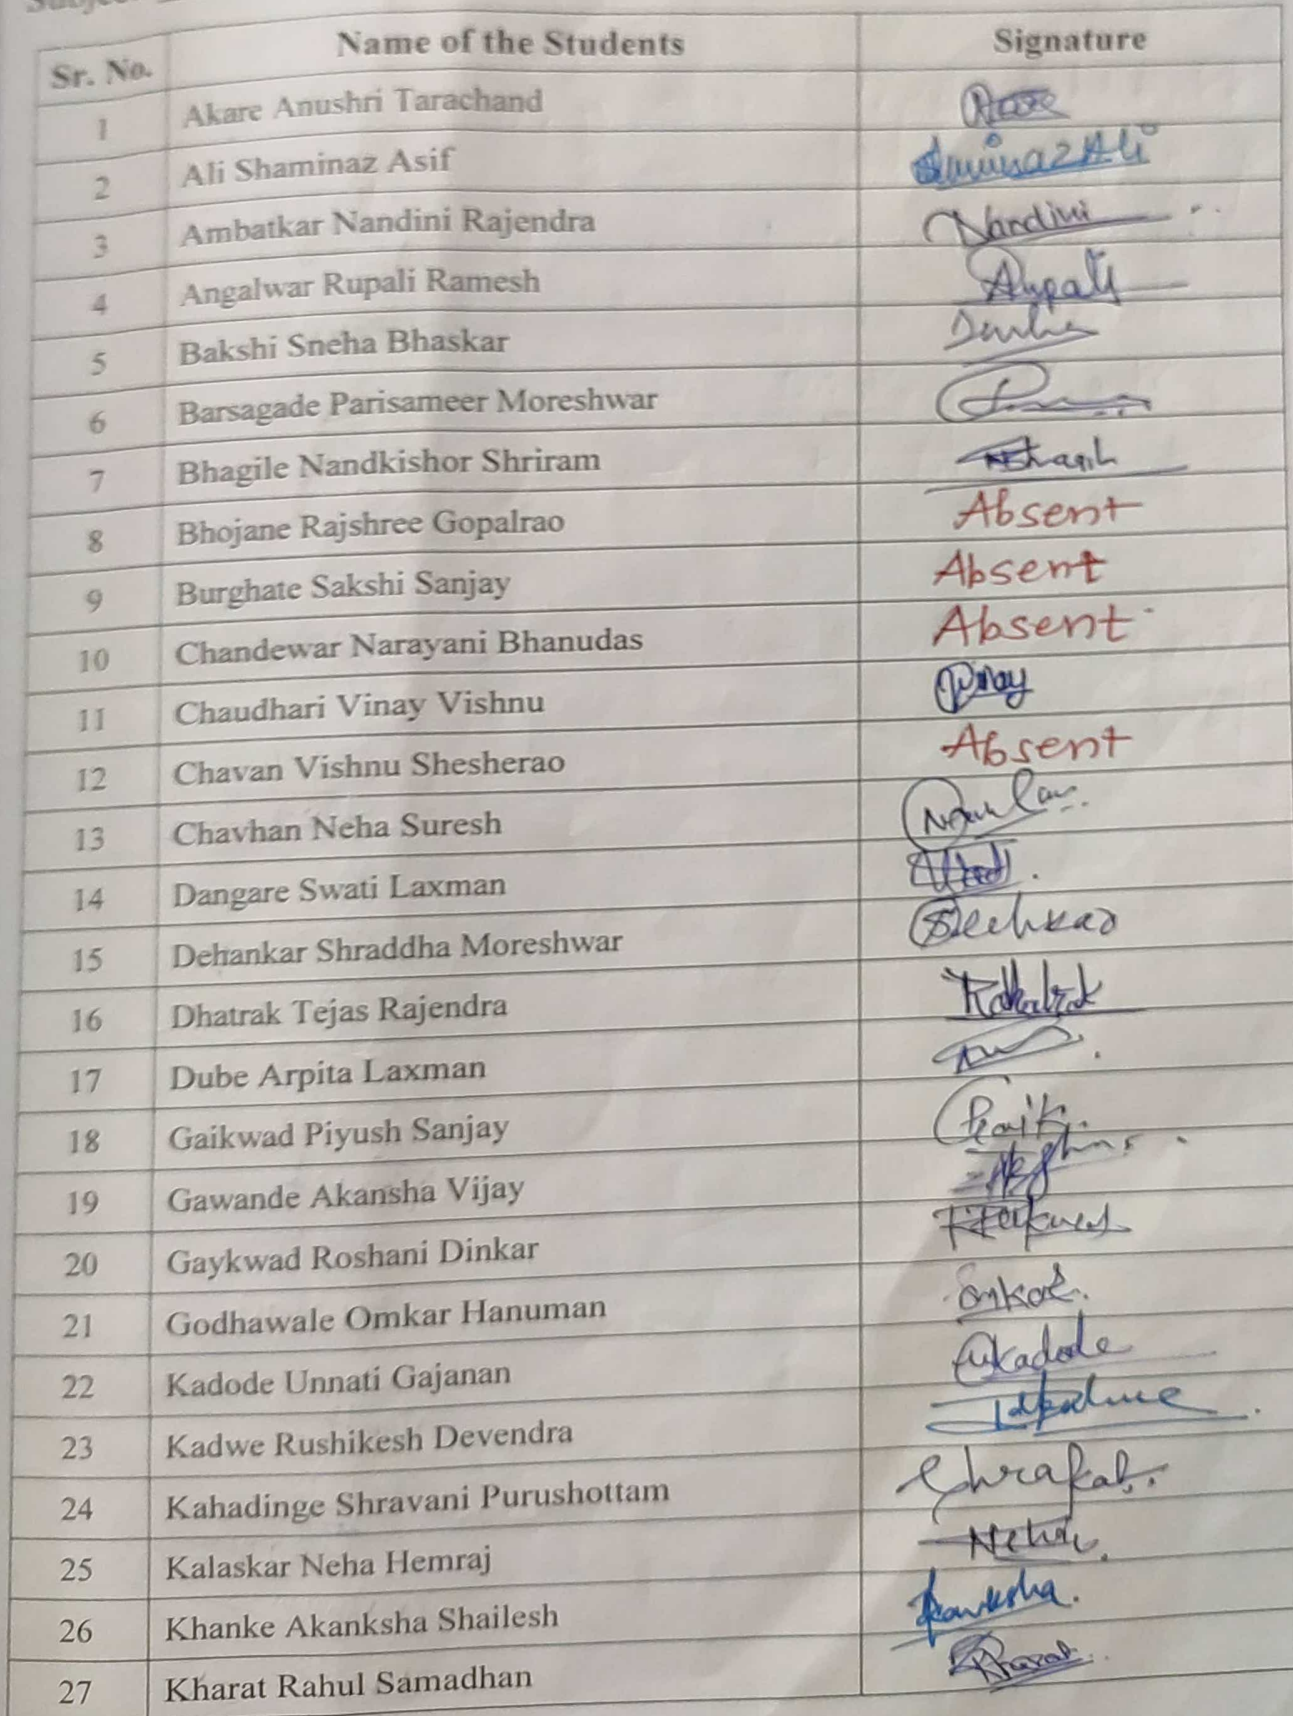 Sr. No. Name of the Students Signature
1 Akare Anushri Tarachand
2 Ali Shaminaz Asif ShaminazAli
3 Ambatkar Nandini Rajendra Nandini
4 Angalwar Rupali Ramesh Rupali
5 Bakshi Sneha Bhaskar
6 Barsagade Parisameer Moreshwar
7 Bhagile Nandkishor Shriram
8 Bhojane Rajshree Gopalrao Absent
9 Burghate Sakshi Sanjay Absent
10 Chandewar Narayani Bhanudas Absent
11 Chaudhari Vinay Vishnu Vinay
12 Chavan Vishnu Shesherao Absent
13 Chavhan Neha Suresh
14 Dangare Swati Laxman
15 Dehankar Shraddha Moreshwar
16 Dhatrak Tejas Rajendra
17 Dube Arpita Laxman
18 Gaikwad Piyush Sanjay
19 Gawande Akansha Vijay
20 Gaykwad Roshani Dinkar
21 Godhawale Omkar Hanuman Omkar
22 Kadode Unnati Gajanan Ukadode
23 Kadwe Rushikesh Devendra
24 Kahadinge Shravani Purushottam
25 Kalaskar Neha Hemraj Neha
26 Khanke Akanksha Shailesh
27 Kharat Rahul Samadhan Kharat